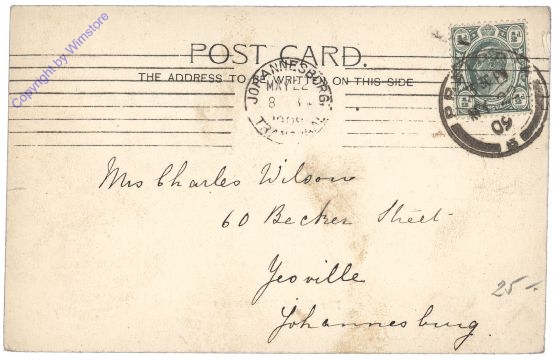 Copyright by Wimstore
POST CARD.
THE ADDRESS TO BE WRITTEN ON THIS SIDE
JOHANNESBURG
MAY 22
8
Mrs Charles Wilson
60 Becker Street
Yeoville
Johannesburg.
25-